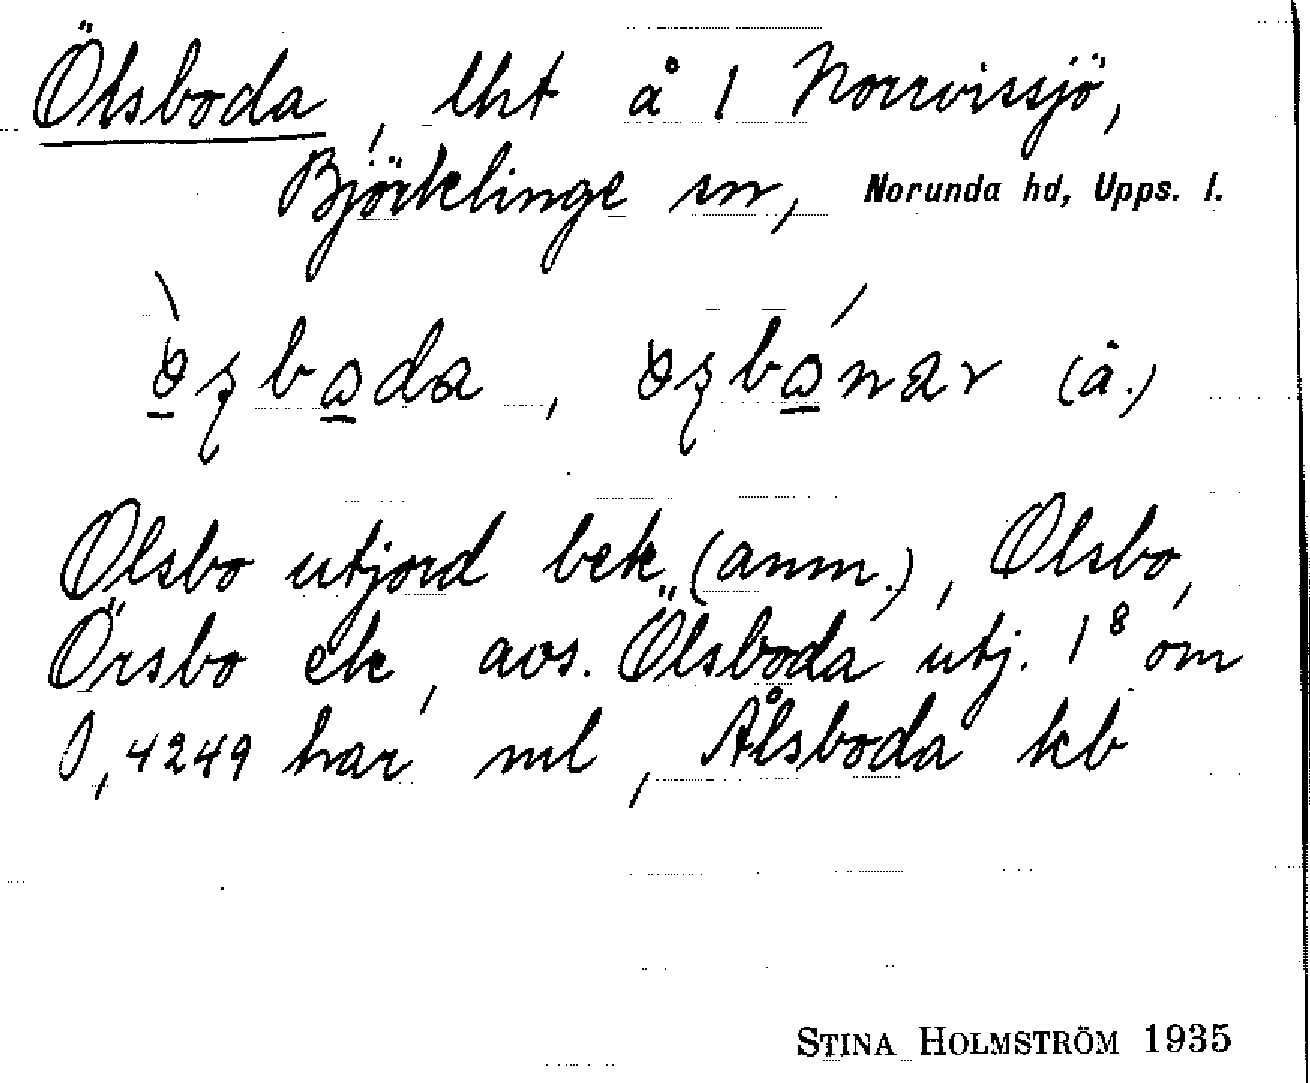 Ölsboda, lht å 1 Norrvissjö,
Björklinge sn, Norunda hd, Upps. l.
ö̀ʂboda, öʂbónar (å.)
Ölsbo utjord bek. (anm.), Olsbo,
Örsbo ek, avs. Ölsboda utj. 1⁸ om
0,4249 har ml, Ålsboda kb
STINA HOLMSTRÖM 1935